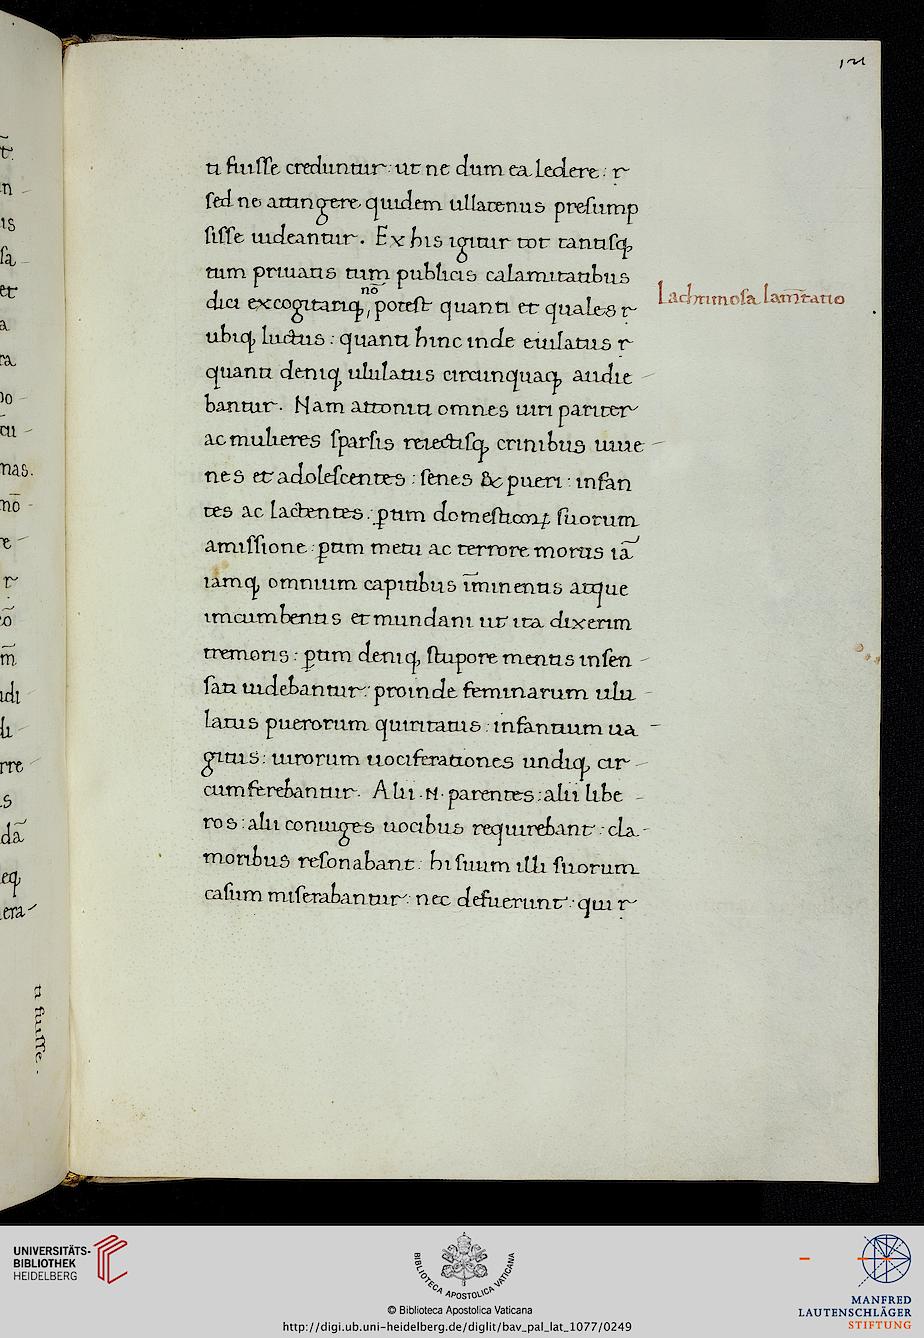 121
ti fuisse creduntur: ut ne dum ea ledere: r
sed ne attingere quidem ullatenus presump
sisse uideantur. Ex his igitur tot tantisq;
tum priuatis tum publicis calamitatibus
Lachrimosa lam̄tatio
nō
dici excogitariq;, potest quanti et quales r
ubiq; luctus: quanti hinc inde eiulatus r
quanti deniq; ululatus circunquaq; audie
bantur. Nam attoniti omnes uiri pariter
ac mulieres sparsis reiectisq; crinibus iuue
nes et adolescentes: senes & pueri: infan
tes ac lactentes: ꝑtim domesticoꝝ suorum
amissione: ꝑtim metu ac terrore mortis iā
iamq; omnium capitibus īminentis atque
imcumbentis et mundani ut ita dixerim
tremoris: ꝑtim deniq; stupore mentis insen
sati uidebantur: proinde feminarum ulu
latus puerorum quiritatus: infantium ua
gitus: uirorum uociferationes undiq; cir
cumferebantur. Alii .N. parentes: alii libe
ros: alii coniuges uocibus requirebant: cla
moribus resonabant: hi suum illi suorum
casum miserabantur: nec defuerunt: qui r
ti fuisse.
UNIVERSITÄTS-
BIBLIOTHEK
HEIDELBERG
BIBLIOTECA APOSTOLICA VATICANA
© Biblioteca Apostolica Vaticana
http://digi.ub.uni-heidelberg.de/diglit/bav_pal_lat_1077/0249
MANFRED
LAUTENSCHLÄGER
STIFTUNG